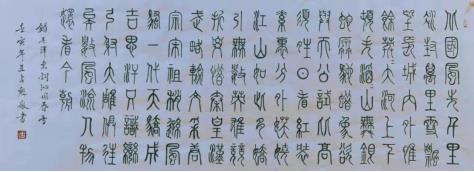 北國風光千里
冰封萬里雪飄
望長城內外惟
餘莽莽大河上下
頓失滔滔山舞銀
蛇原馳蠟象欲
與天公試比高
須晴日看紅裝
素裹分外妖嬈
江山如此多嬌
引無數英雄競
折腰惜秦皇漢
武略輸文采唐
宗宋祖稍遜風
騷一代天驕成
吉思汗只識彎
弓射大雕俱往
矣數風流人物
還看今朝
錄毛澤東詞沁園春雪
壬寅年 書